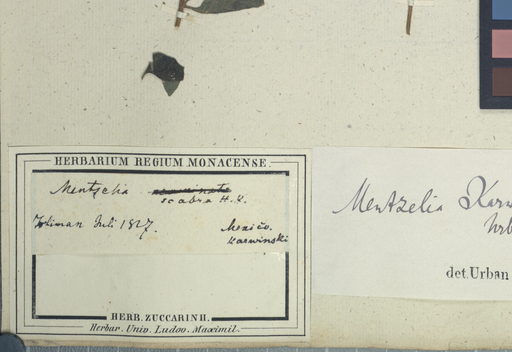 HERBARIUM REGIUM MONACENSE.
Mentzelia acuminata
scabra H. K.
Juli 1827.
Mexico.
Karwinski
HERB. ZUCCARINII.
Herbar. Univ. Ludov. Maximil.
Mentzelia Karw
Urb
det. Urban